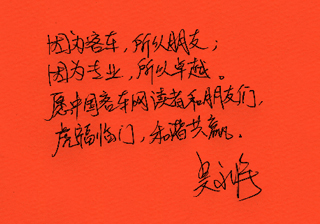 因为客车，所以朋友；
因为专业，所以卓越。
愿中国客车网读者和朋友们，
虎福临门，和谐共赢。